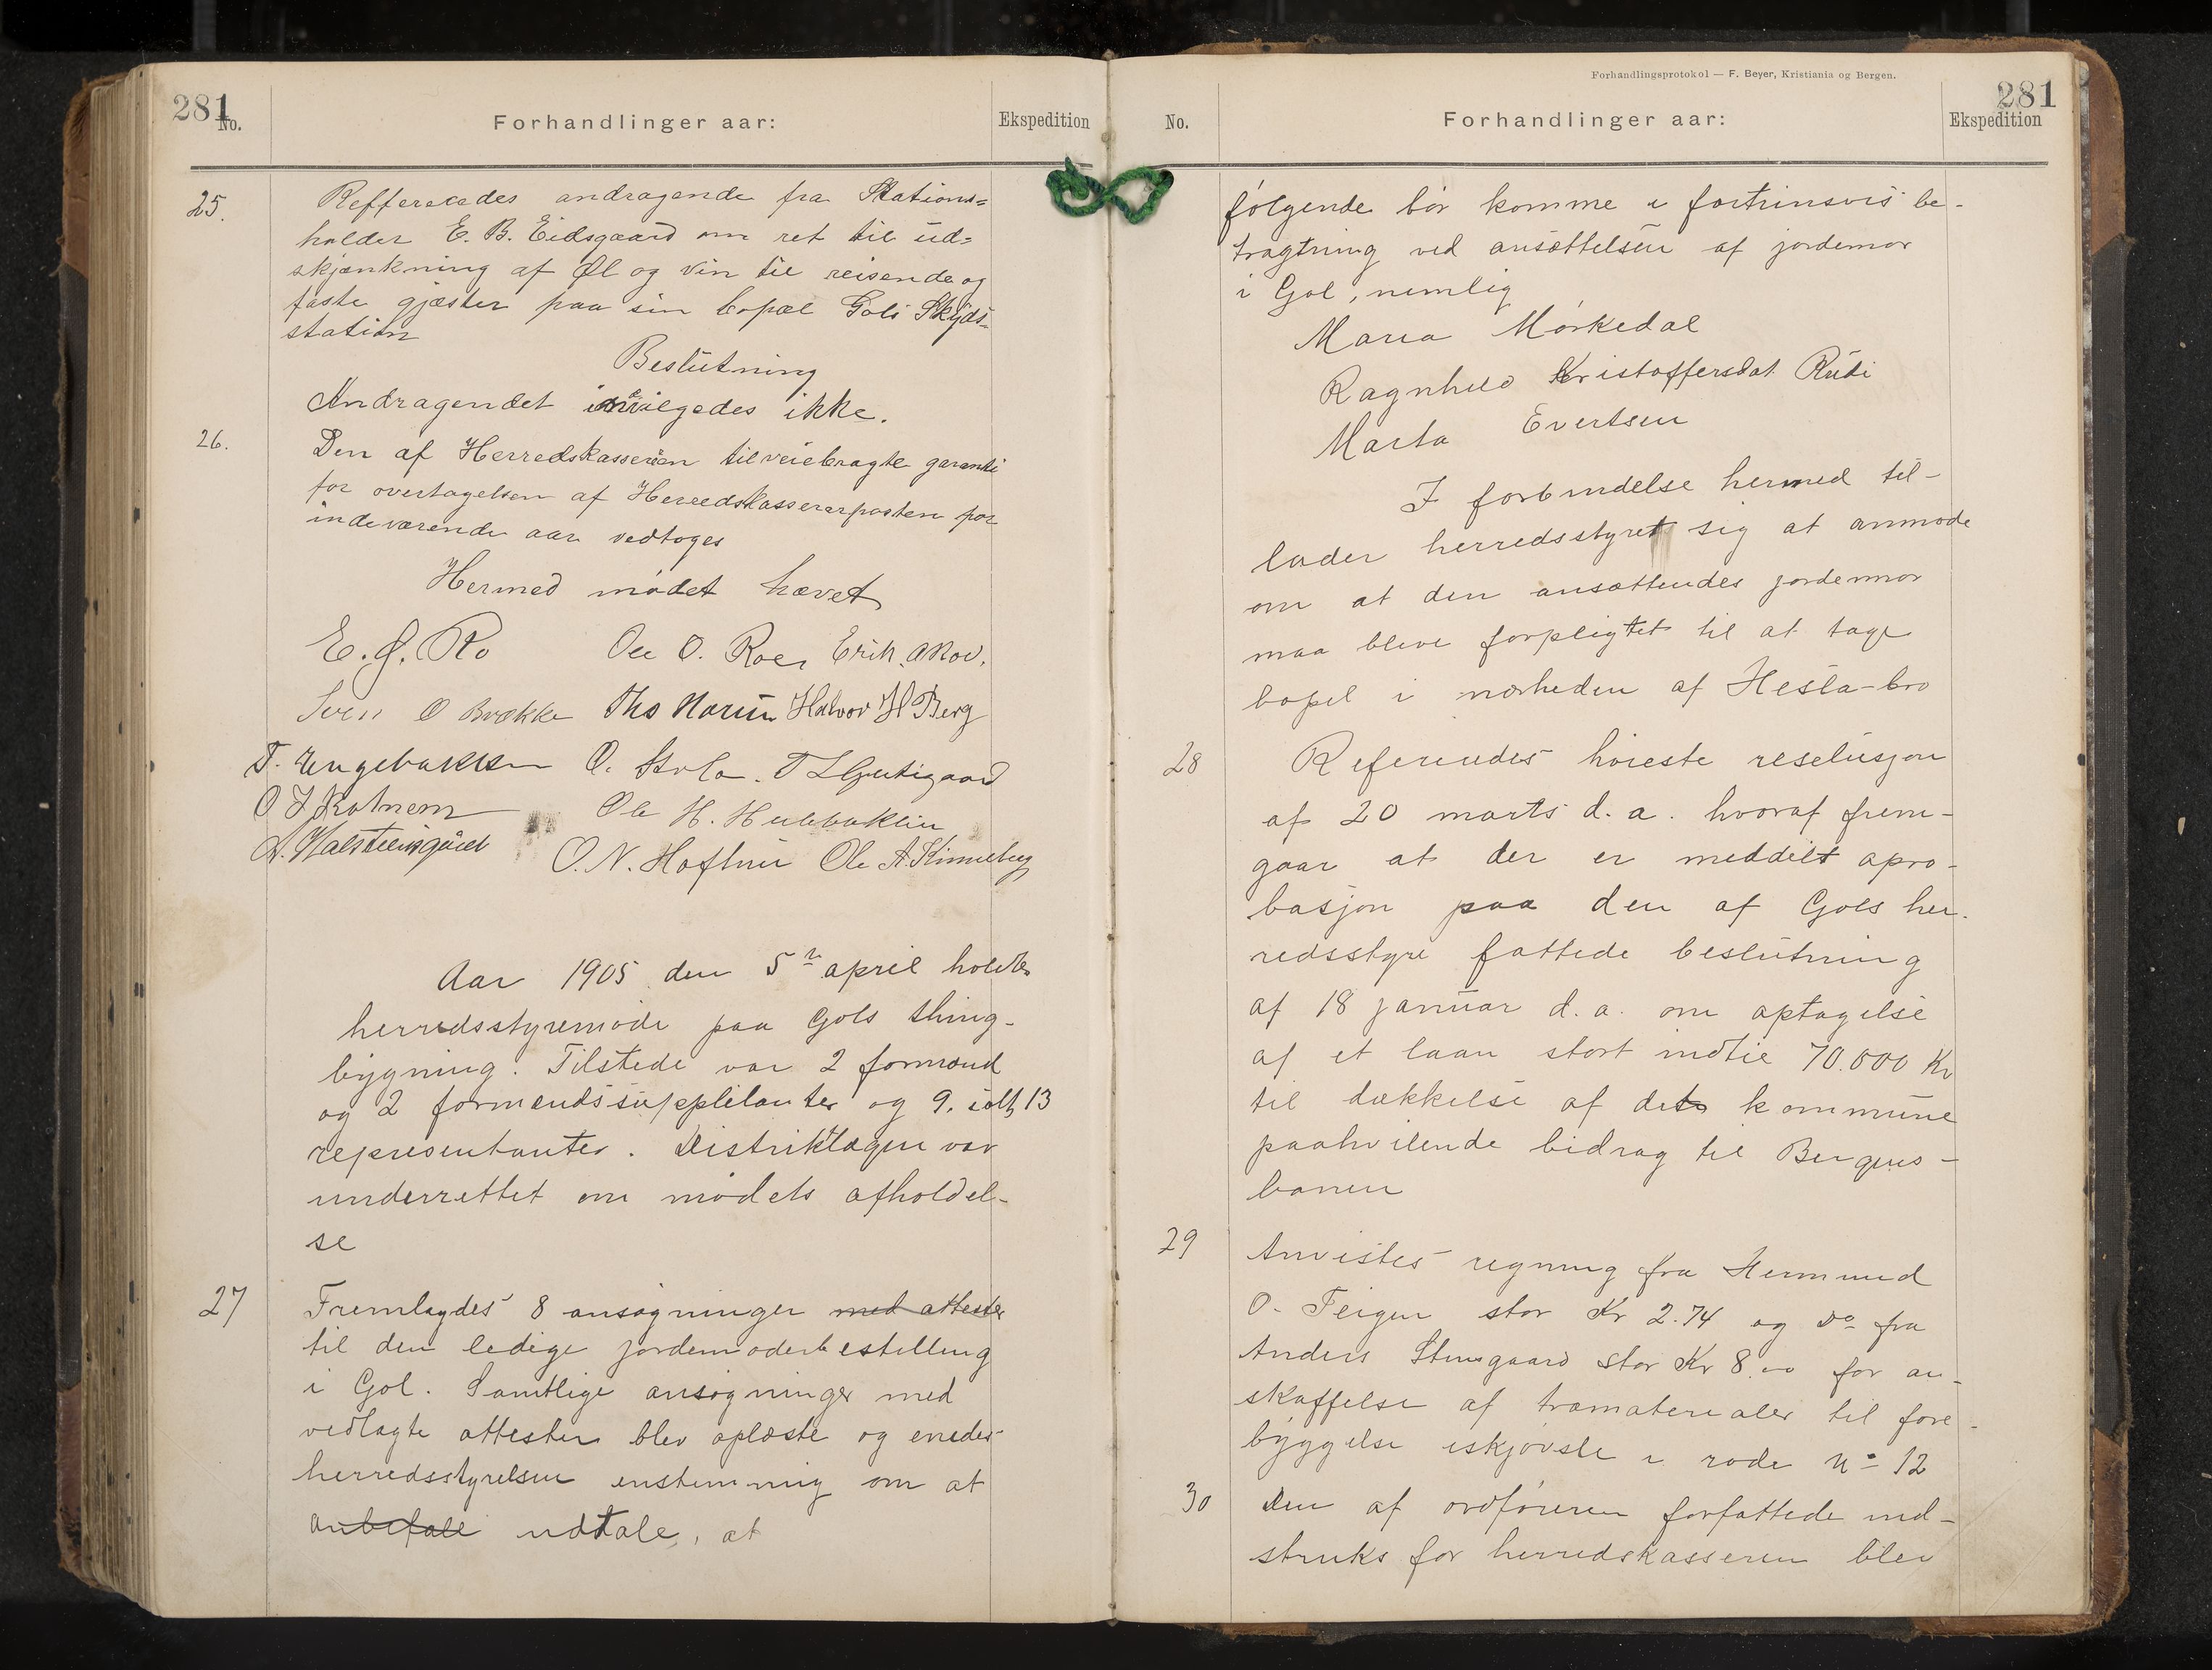 281
No.
Forhandlinger aar:
Ekspedition
25.
Refferecedes andragende fra Stations=
holder E. B. Eidsgaard om ret til ud=
skjænkning af Øl og vin til reisende og
faste gjæster paa sin bopæl Gols Skyds=
station
Beslutning
Andragendet indvilgedes ikke.
26.
Den af Herredskasseren tilveiebragte garanti
for overtagelsen af Herredskassererposten for
indeværende aar vedtoges
Hermed mødet hævet
E. G. Ro Ole O. Roe, Erik
Sven O Brække Ths Narum Halvor H Berg
T. Engebakken O. Storla.
O T Rotnem Ole H. Hulebakken
O. N. Hoftun Ole A. Kinneberg
Aar 1905 den 5te april holdtes
herredsstyremøde paa Gols thing-
bygning. Tilstede var 2 formænd
og 2 formændssupplilanter og 9. ialt 13
representanter. Distriktlægen var
underrettet om mødets afholdel-
se
27
Fremlagdes 8 ansøgninger med attester
til den ledige jordemoderbestilling
i Gol. Samtlige ansøgninger med
vedlagte attester blev oplæste og enedes
herredsstyrelsen enstemmig om at
anbefale udtale, at
Forhandlingsprotokol — F. Beyer, Kristiania og Bergen.
281
No.
Forhandlinger aar:
Ekspedition
følgende bør komme i fortrinsvis be-
tragtning ved ansættelsen af jordemor
i Gol, nemlig
Maria Mørkedal
Ragnhild Kristoffersdat Rudi
Marta Evertsen
I forbindelse hermed til-
lader herredsstyret sig at anmode
om at den ansættendes jordemor
maa blive forpligtet til at tage
bopel i nærheden af Hesla-bro
28
Refereredes høieste resolusjon
af 20 marts d. a. hvoraf frem-
gaar at der er meddelt apro-
basjon paa den af Gols her-
redsstyre fattede beslutning
af 18 januar d. a. om optagelse
af et laan stort indtil 70.000 Kr
til dækkelse af dets kommune
paahvilende bidrag til Bergens-
banen
29
Anvistes regning fra Hermund
O. Teigen stor Kr 2.74 og do fra
Anders Stensgaard stor Kr 8.00 for an-
skaffelse af tramaterialer til fore-
byggelse iskjøvele i rode No 12
30
Den af ordføreren forfattede ind-
struks for herredskasseren blev